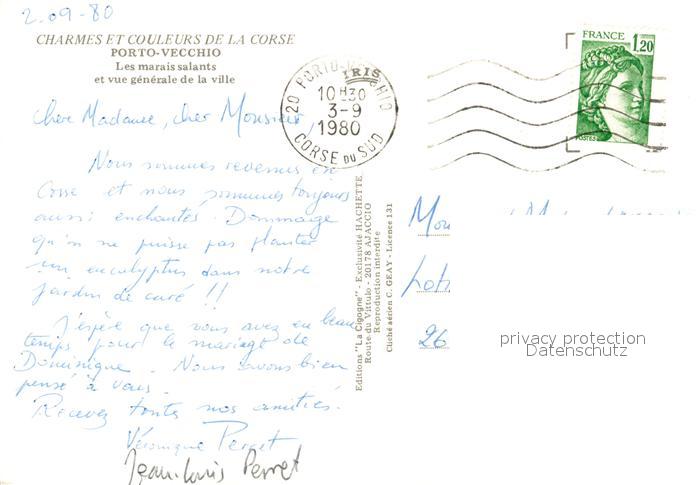 2.09-80
CHARMES ET COULEURS DE LA CORSE
PORTO-VECCHIO
Les marais salants
et vue générale de la ville
Chère Madame, cher Monsieur,
Nous sommes revenus en
Corse et nous sommes toujours
aussi enchantés. Dommage
qu'on ne puisse pas planter
un eucalyptus dans notre
jardin de curé !!
J'espère que vous avez eu beau
temps pour le mariage de
Dominique. Nous avons bien
pensé à vous.
Recevez toutes nos amitiés.
Véronique Perret
Jean-Louis Perret
Editions "La Cigogne" - Exclusivité HACHETTE
Route du Vittulo - 20178 AJACCIO
Reproduction interdite
Cliché aérien C. GEAY - Licence 131
20 PORTO-VECCHIO
10H30
3-9
1980
CORSE DU SUD
FRANCE 1,20
POSTES
26
privacy protection
Datenschutz